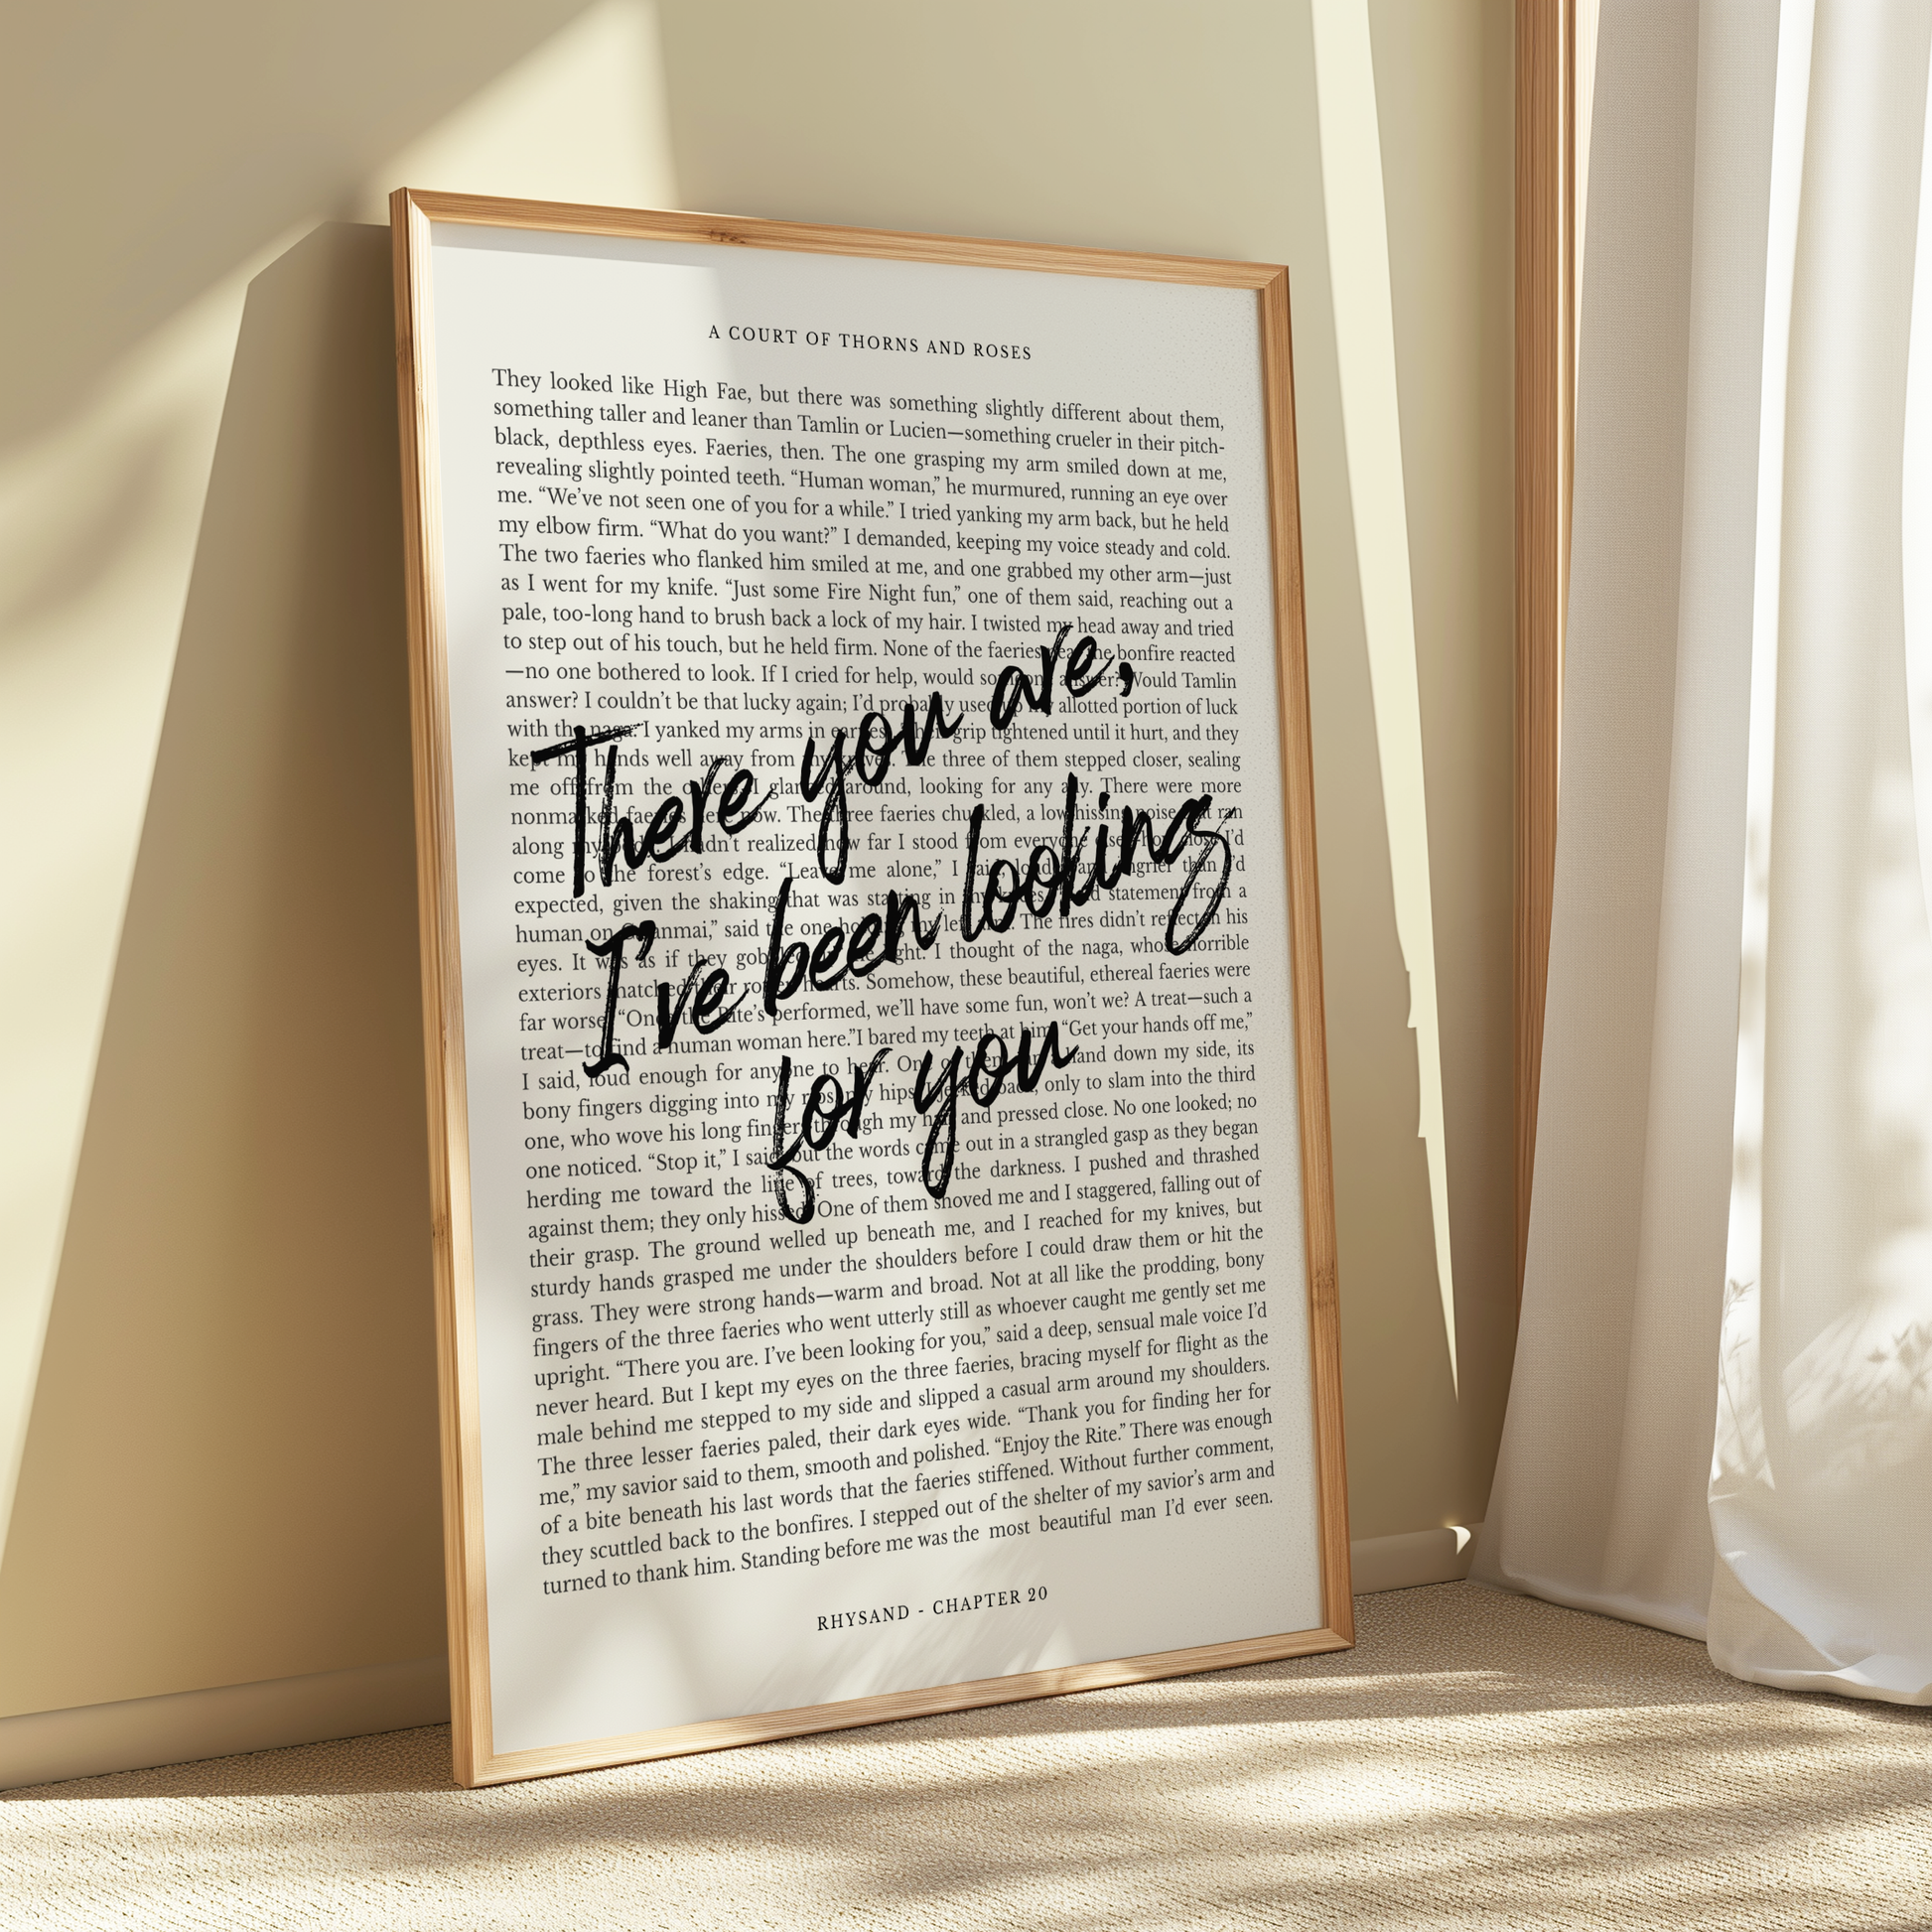 A COURT OF THORNS AND ROSES
They looked like High Fae, but there was something slightly different about them,
something taller and leaner than Tamlin or Lucien—something crueler in their pitch-
black, depthless eyes. Faeries, then. The one grasping my arm smiled down at me,
revealing slightly pointed teeth. “Human woman,” he murmured, running an eye over
me. “We’ve not seen one of you for a while.” I tried yanking my arm back, but he held
my elbow firm. “What do you want?” I demanded, keeping my voice steady and cold.
The two faeries who flanked him smiled at me, and one grabbed my other arm—just
as I went for my knife. “Just some Fire Night fun,” one of them said, reaching out a
pale, too-long hand to brush back a lock of my hair. I twisted my head away and tried
to step out of his touch, but he held firm. None of the faeries near the bonfire reacted
—no one bothered to look. If I cried for help, would someone answer? Would Tamlin
answer? I couldn’t be that lucky again; I’d probably used up my allotted portion of luck
with the naga. I yanked my arms in earnest. Their grip tightened until it hurt, and they
kept my hands well away from my knives. The three of them stepped closer, sealing
me off from the others. I glanced around, looking for any ally. There were more
nonmasked faeries here now. The three faeries chuckled, a low hissing noise that ran
along my body. I hadn’t realized how far I stood from everyone else—how close I’d
come to the forest’s edge. “Leave me alone,” I said, louder and angrier than I’d
expected, given the shaking that was starting in my knees. “Bold statement from a
human on Calanmai,” said the one holding my left arm. The fires didn’t reflect in his
eyes. It was as if they gobbled up the light. I thought of the naga, whose horrible
exteriors matched their rotten hearts. Somehow, these beautiful, ethereal faeries were
far worse. “Once the Rite’s performed, we’ll have some fun, won’t we? A treat—such a
treat—to find a human woman here.”I bared my teeth at him. “Get your hands off me,”
I said, loud enough for anyone to hear. One of them ran a hand down my side, its
bony fingers digging into my ribs, my hips. I jerked back, only to slam into the third
one, who wove his long fingers through my hair and pressed close. No one looked; no
one noticed. “Stop it,” I said, but the words came out in a strangled gasp as they began
herding me toward the line of trees, toward the darkness. I pushed and thrashed
against them; they only hissed. One of them shoved me and I staggered, falling out of
their grasp. The ground welled up beneath me, and I reached for my knives, but
sturdy hands grasped me under the shoulders before I could draw them or hit the
grass. They were strong hands—warm and broad. Not at all like the prodding, bony
fingers of the three faeries who went utterly still as whoever caught me gently set me
upright. “There you are. I’ve been looking for you,” said a deep, sensual male voice I’d
never heard. But I kept my eyes on the three faeries, bracing myself for flight as the
male behind me stepped to my side and slipped a casual arm around my shoulders.
The three lesser faeries paled, their dark eyes wide. “Thank you for finding her for
me,” my savior said to them, smooth and polished. “Enjoy the Rite.” There was enough
of a bite beneath his last words that the faeries stiffened. Without further comment,
they scuttled back to the bonfires. I stepped out of the shelter of my savior’s arm and
turned to thank him. Standing before me was the most beautiful man I’d ever seen.
There you are,
I’ve been looking
for you
RHYSAND - CHAPTER 20